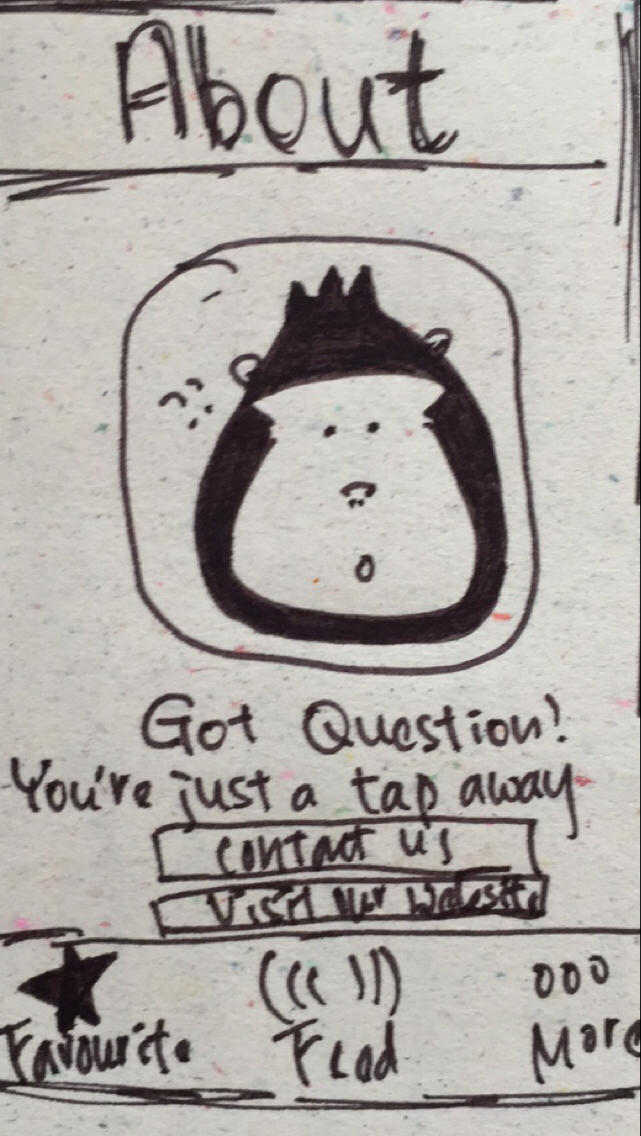 About
??
Got Question!
You're just a tap away
contact us
Visit our website
Favourite
More